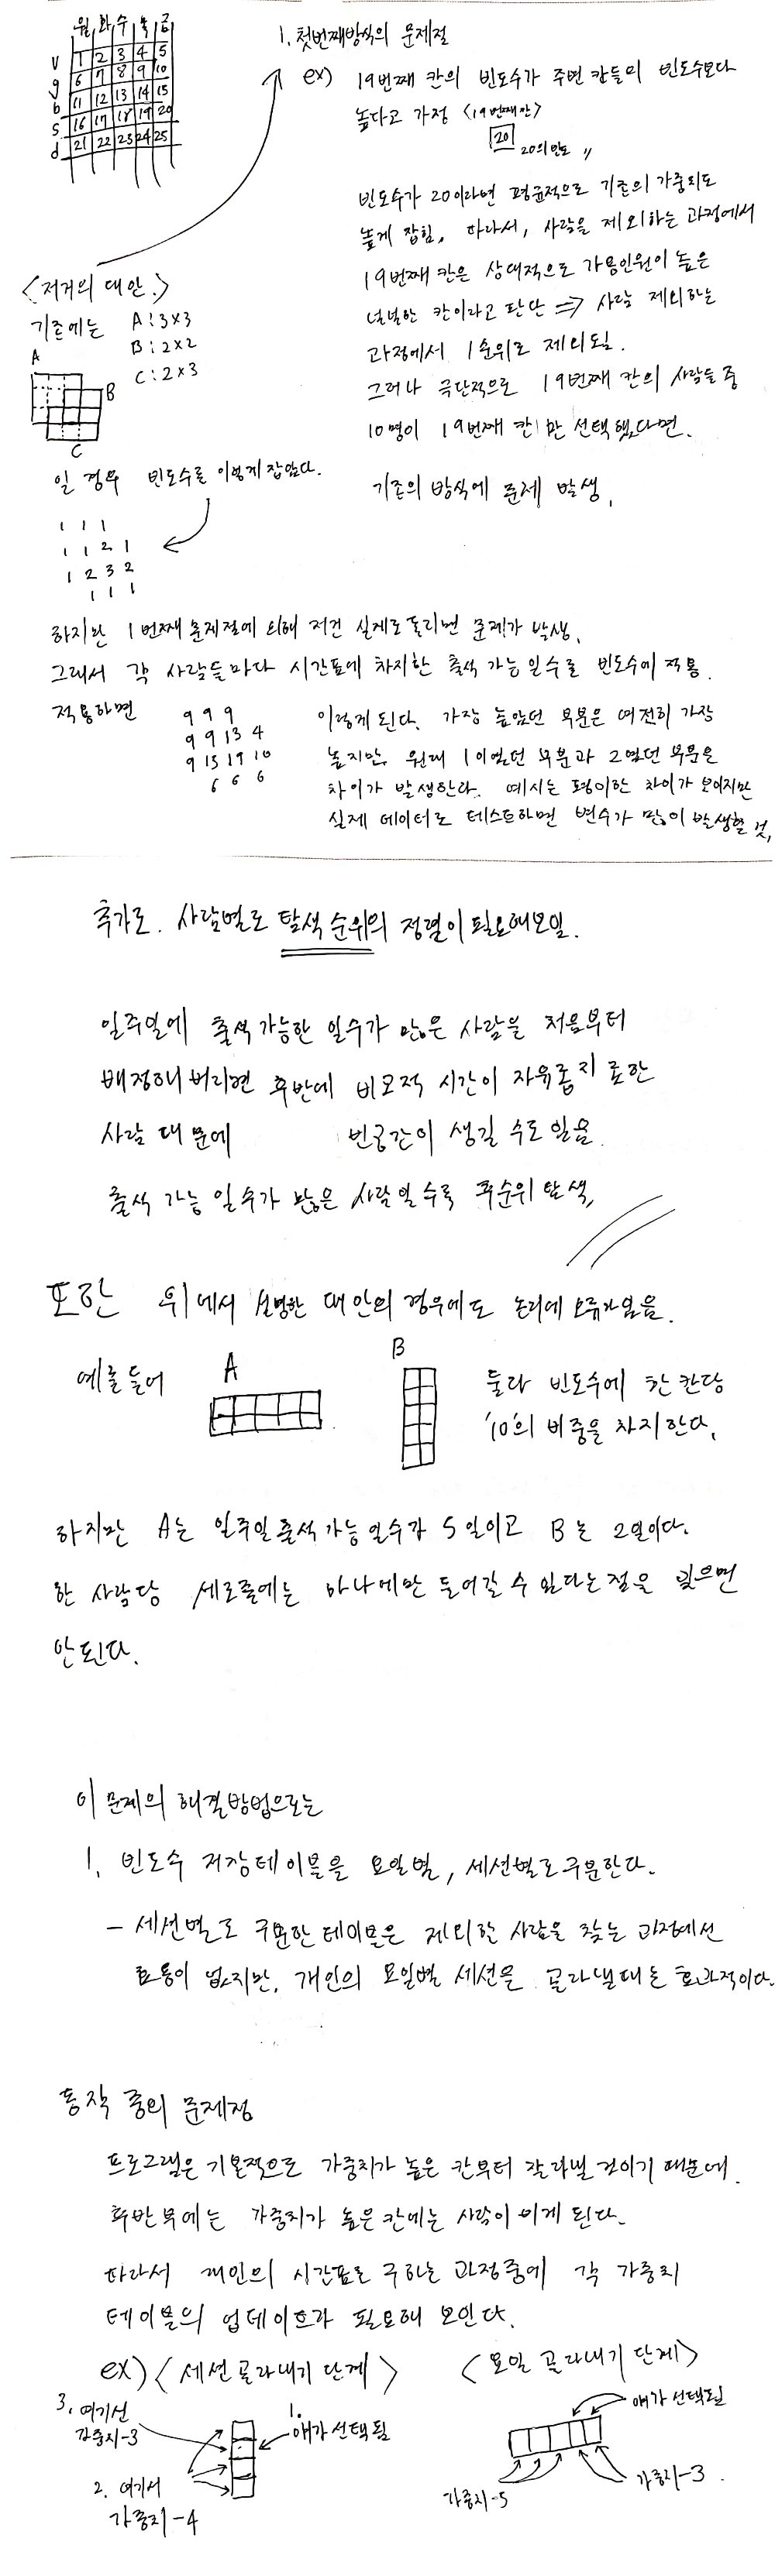 월 화 수 목 금
v 1 2 3 4 5
g 6 7 8 9 10
b 11 12 13 14 15
s 16 17 18 19 20
d 21 22 23 24 25
1. 첫번째방식의 문제점
ex) 19번째 칸의 빈도수가 주변 칸들의 빈도수보다
높다고 가정 <19번째칸>
20
20의빈도
빈도수가 20이라면 평균적으로 기존의 가중치도
높게 잡힘, 따라서, 사람을 제외하는 과정에서
19번째 칸은 상대적으로 가용인원이 높은
널널한 칸이라고 판단 ⇒ 사람 제외하는
과정에서 1순위로 제외됨.
그러나 극단적으로 19번째 칸의 사람들 중
10명이 19번째 칸만 선택했다면.
기존의 방식에 문제 발생.
<저거의 대안.>
기존에는 A : 3x3
B : 2x2
C : 2x3
A
B
C
일 경우 빈도수를 이렇게 잡았다.
1 1 1
1 1 2 1
1 2 3 2
1 1 1
하지만 1번째 문제점에 의해 저건 실제로 돌리면 문제가 발생.
그래서 각 사람들마다 시간표에 차지한 출석 가능 일수를 빈도수에 적용.
적용하면
9 9 9
9 9 13 4
9 15 19 10
6 6 6
이렇게 된다. 가장 높았던 부분은 여전히 가장
높지만, 원래 1이었던 부분과 2였던 부분은
차이가 발생한다. 예시는 평이한 차이가 보이지만
실제 데이터로 테스트하면 변수가 많이 발생할 것.
추가로. 사람별로 탐색 순위의 정렬이 필요해보임.
일주일에 출석 가능한 일수가 많은 사람을 처음부터
배정해 버리면 후반에 비교적 시간이 자유롭지 못한
사람 때문에 빈공간이 생길 수도 있음.
출석 가능 일수가 많은 사람일수록 후순위 탐색.
또한 위에서 설명한 대안의 경우에도 논리에 오류가있음.
예를 들어 A B 둘다 빈도수에 한 칸당
'10'의 비중을 차지한다.
하지만 A는 일주일 출석 가능 일수가 5일이고 B는 2일이다.
한 사람당 세로줄에는 하나에만 들어갈 수 있다는 점을 잊으면
안된다.
이 문제의 해결방법으로는
1. 빈도수 저장테이블을 요일별, 세션별로 구분한다.
- 세션별로 구분한 테이블은 제외할 사람을 찾는 과정에선
효용이 없지만, 개인의 요일별 세션을 골라낼때는 효과적이다.
동작 중의 문제점
프로그램은 기본적으로 가중치가 높은 칸부터 잘라낼 것이기 때문에.
후반부에는 가중치가 높은 칸에는 사람이 비게 된다.
따라서 개인의 시간표를 구하는 과정중에 각 가중치
테이블의 업데이트가 필요해 보인다.
ex) <세션 골라내기 단계>
<요일 골라내기 단계>
3. 여기선
가중치-3
1.
얘가 선택됨
2. 여기서
가중치-4
얘가 선택됨
가중치-5
가중치-3.